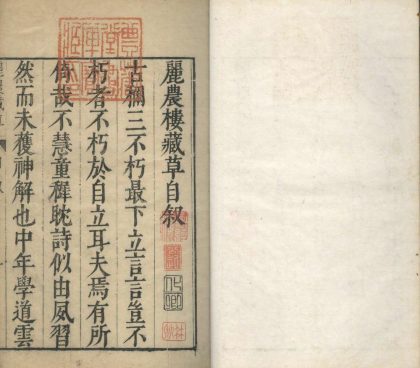 麗農樓藏草自叙
古稱三不朽最下立言言豈不
朽者不朽於自立耳夫焉有所
倚哉不慧童穉耽詩似由夙習
然而未獲神解也中年學道雲